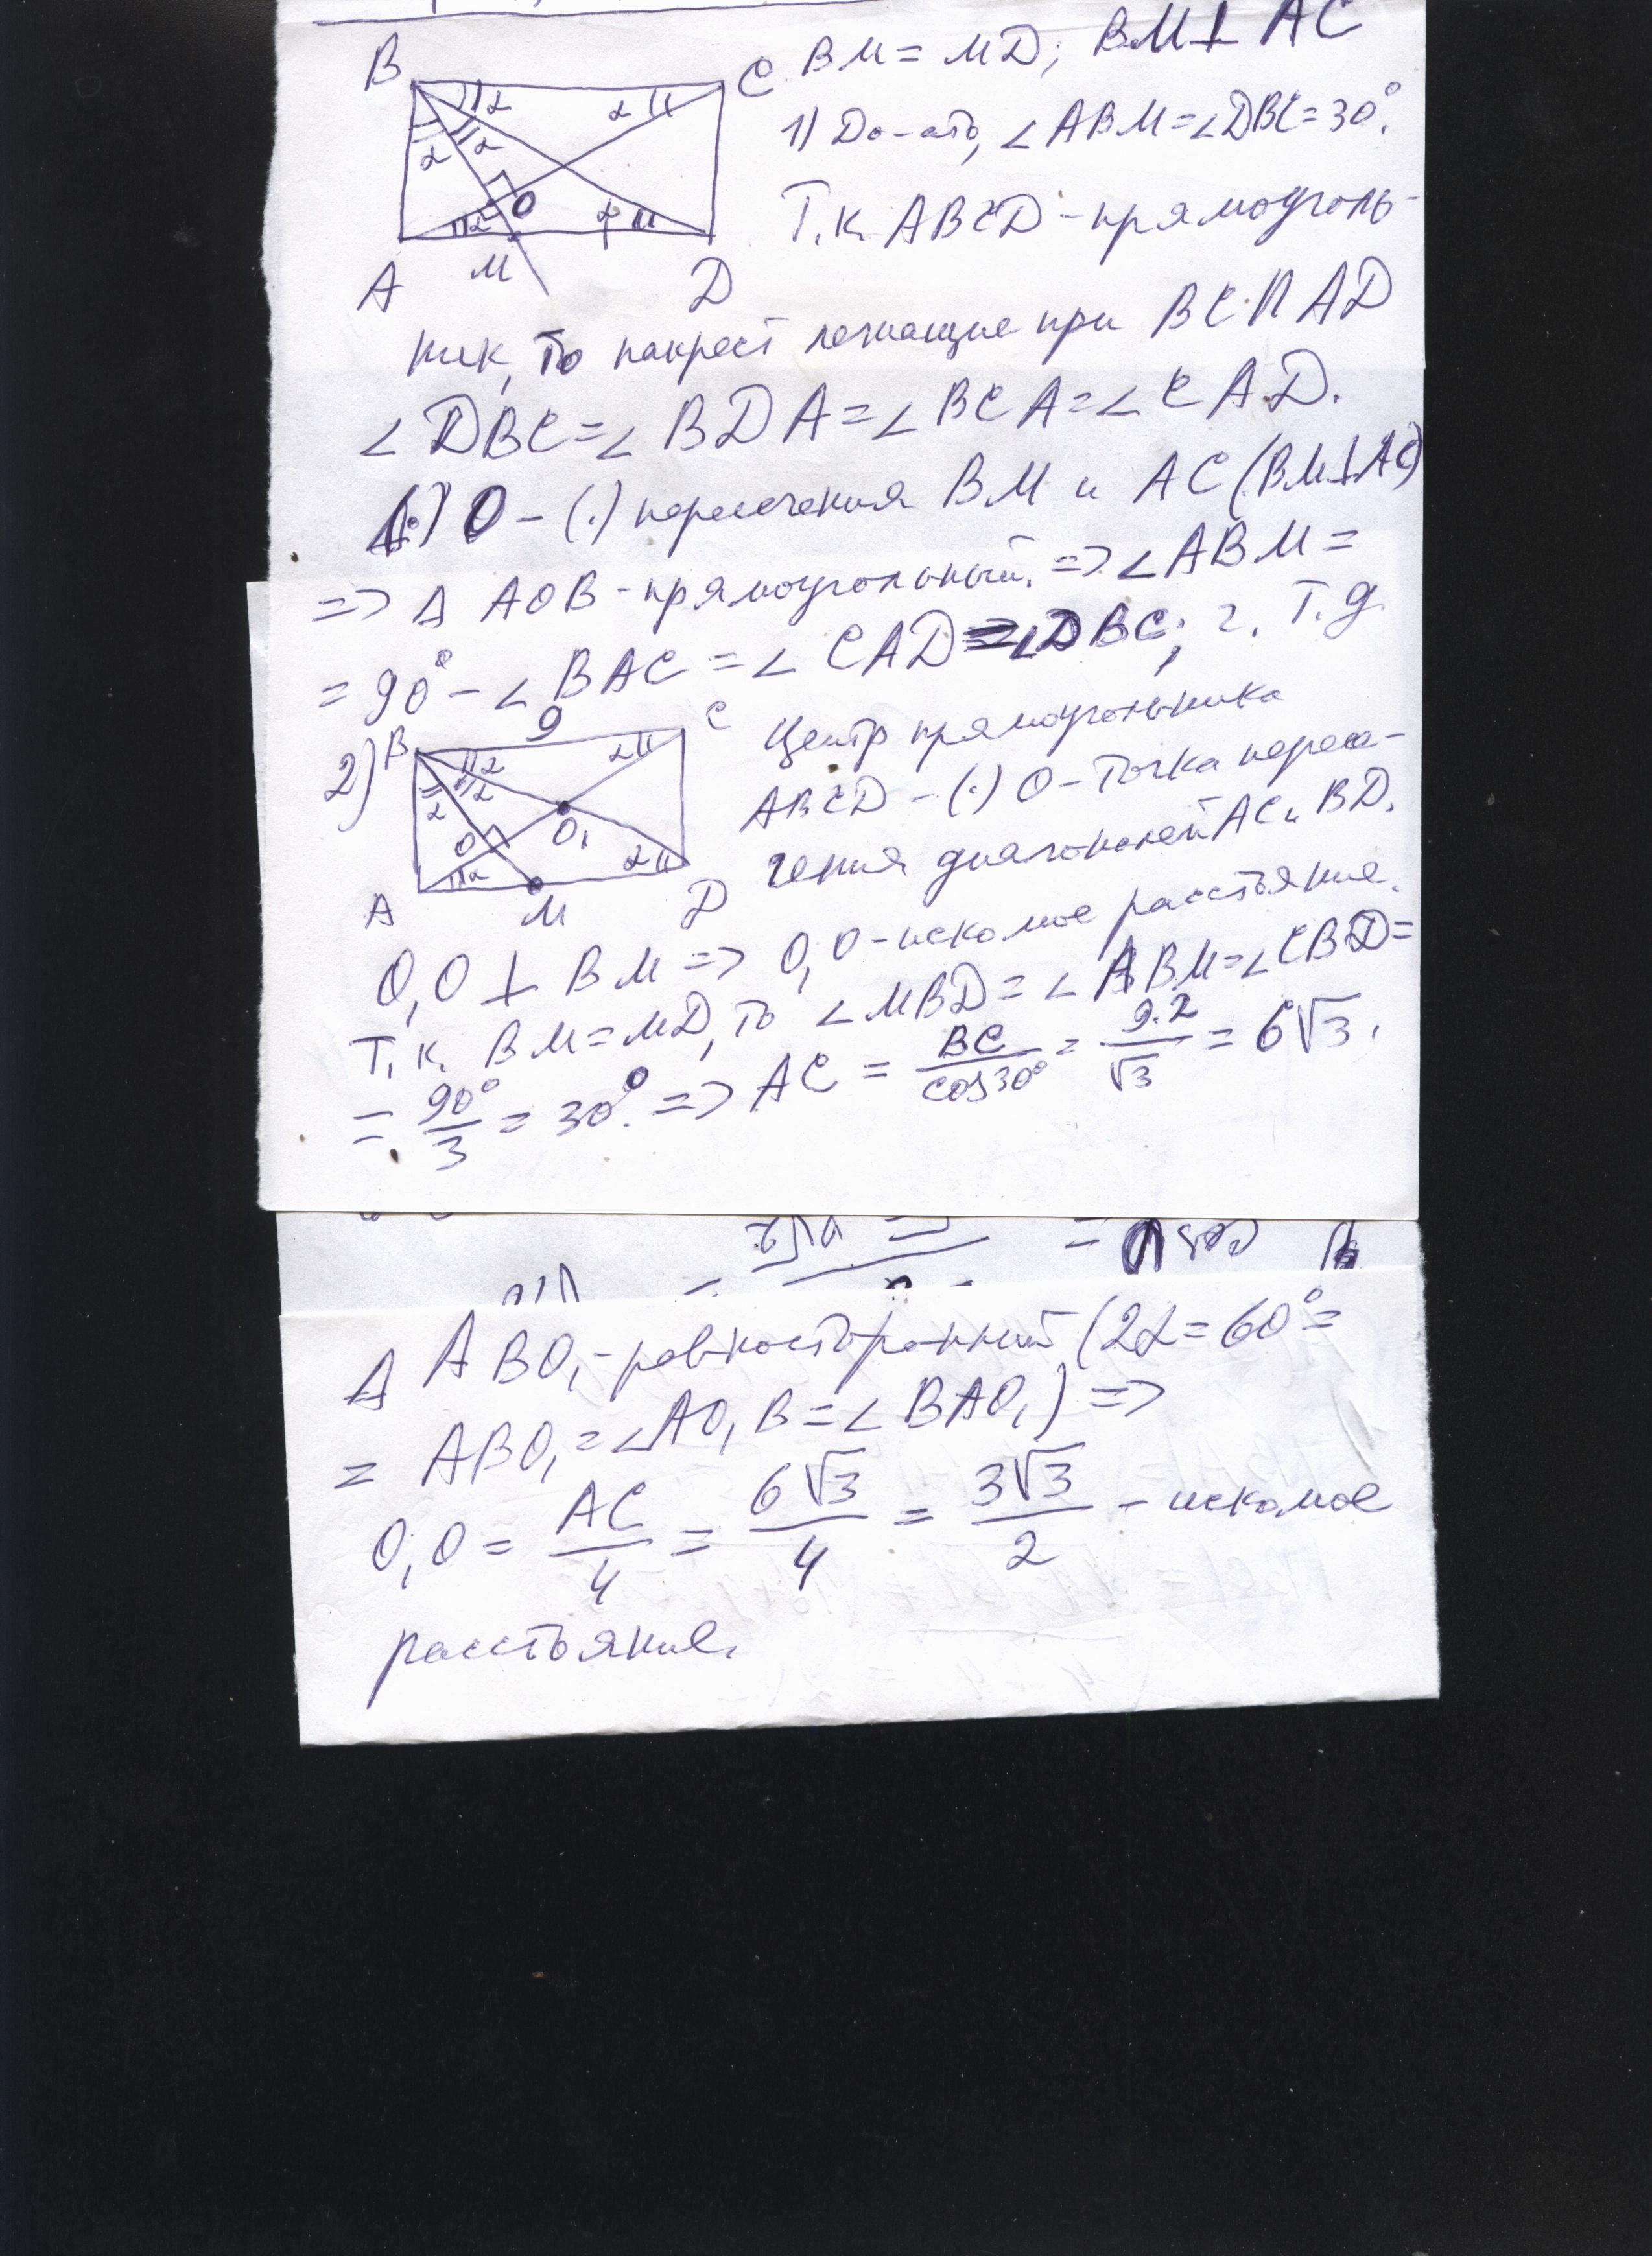 B C BM = MD; BM ⊥ AC
α α α α
1) До-ать, ∠ABM = ∠DBC = 30°.
O α α
Т.к. ABCD - прямоуголь-
A M D
ник, то накрест лежащие при BC ∥ AD
∠DBC = ∠BDA = ∠BCA = ∠CAD.
O - (·) пересечения BM и AC (BM ⊥ AC)
=> Δ AOB - прямоугольный. => ∠ABM =
= 90° - ∠BAC = ∠CAD = ∠DBC; ч. т. д.
2) B 9 C Центр прямоугольника
α α α α
ABCD - (·) O - точка пересе-
O O₁ α α
чения диагоналей AC и BD.
A M D
O₁O ⊥ BM => O₁O - искомое расстояние.
Т.к. BM = MD, то ∠MBD = ∠ABM = ∠CBD =
= 90°/3 = 30°. => AC = BC/cos30° = 9·2/√3 = 6√3.
Δ ABO₁ - равносторонний (2α = 60° =
= ABO₁ = ∠AO₁B = ∠BAO₁) =>
O₁O = AC/4 = 6√3/4 = 3√3/2 - искомое
расстояние.